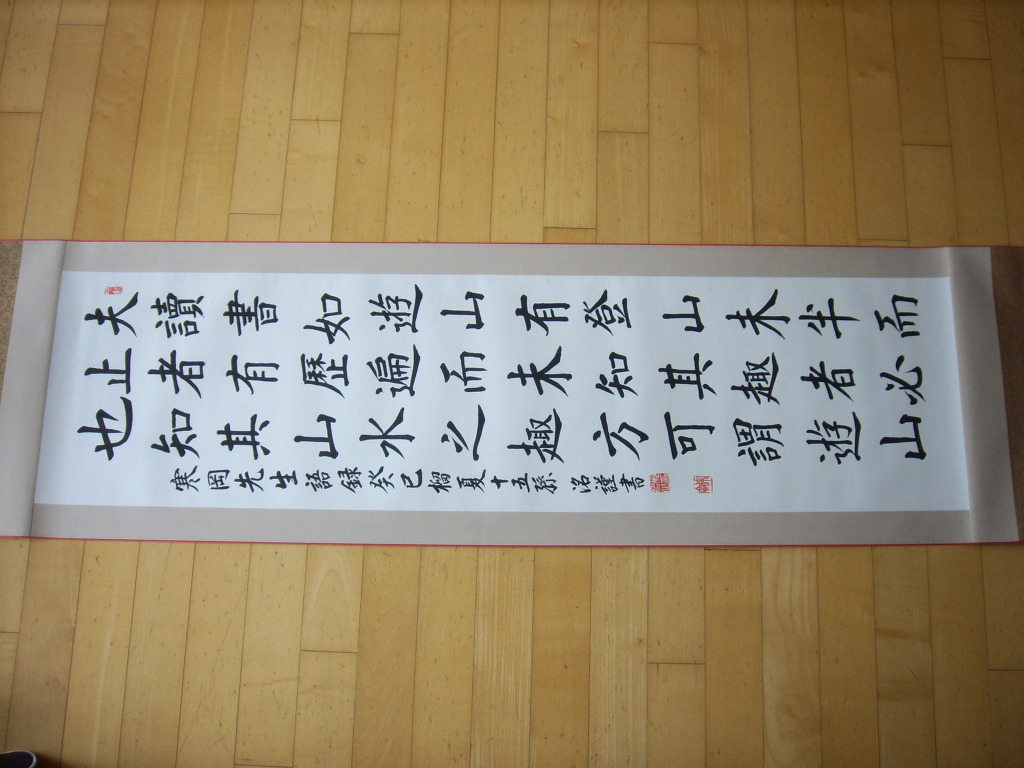 夫讀書如遊山有登山未半而
止者有歷遍而未知其趣者必
也知其山水之趣方可謂遊山
寒岡先生語録癸巳榴夏十五孫 謹書